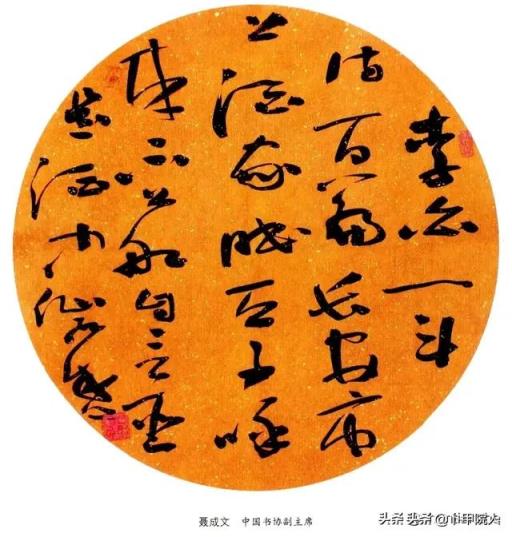 李白一斗
诗百篇长安市
上酒家眠天子呼
来不上船自言臣
是酒中仙
聂成文 中国书协副主席
头条